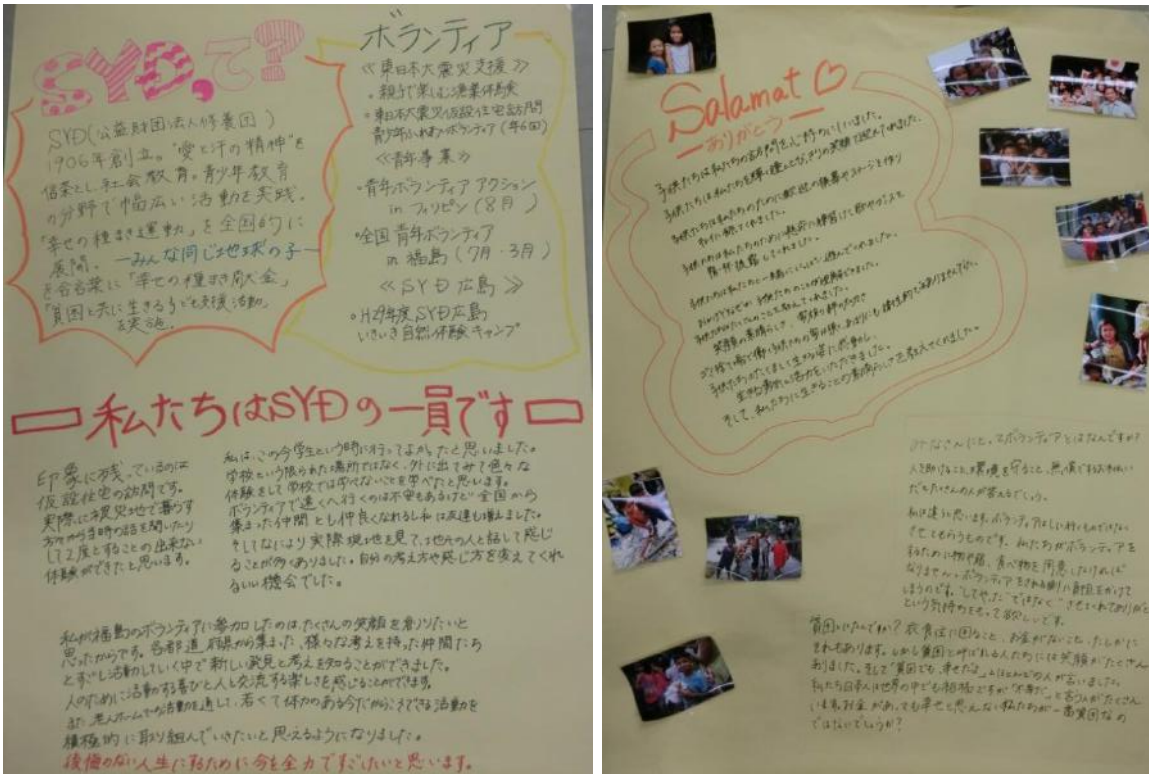 SYD,って?
SYD(公益財団法人修養団)
1906年創立。"愛と汗の精神"を
信条とし、社会教育。青少年教育
の分野で幅広い活動を実践。
「幸せの種まき運動」を全国的に
展開。―みんな同じ地球の子―
を合言葉に「幸せの種まき募金」
「貧困と共に生きる子ども支援活動」
を実施。
ボランティア
≪東日本大震災支援≫
・親子で楽しむ漁業体験
・東日本大震災仮設住宅訪問
青少年ふれあいボランティア(年6回)
≪青年事業≫
・青年ボランティアアクション
in フィリピン(8月)
・全国青年ボランティア
in 福島(7月・3月)
≪SYD広島≫
・H29年度SYD広島
いきいき自然体験キャンプ
私たちはSYDの一員です
印象に残っているのは
仮設住宅の訪問です。
実際に被災地で暮らす
方々から当時の話を聞いたり
して2度とすることの出来ない
体験ができたと思います。
私は、この今学生という時に行ってよかったと思いました。
学校という限られた場所ではなく、外に出てみて色々な
体験をして学校では学べないことを学べたと思います。
ボランティアで遠くへ行くのは不安もあるけど全国から
集まった仲間とも仲良くなれるし私は友達も増えました。
そしてなにより実際現地を見て、現地の人と話して感じ
ることが多くありました。自分の考え方や感じ方を変えてくれ
るいい機会でした。
私が福島のボランティアに参加したのは、たくさんの笑顔を創りたいと
思ったからです。各都道府県から集まった、様々な考えを持った仲間たち
とすごし活動していく中で新しい発見と考えを知ることができました。
人のために活動する喜びと人と交流する楽しさを感じることができます。
また、老人ホームでの活動を通して、若くて体力のある今だからこそできる活動を
積極的に取り組んでいきたいと思えるようになりました。
後悔のない人生にするために今を全力ですごしたいと思います。
Salamat♡
―ありがとう―
子供たちは私たちの訪問を心待ちにしていました。
子供たちは私たちを勝ち踊ととびっきりの笑顔で迎えてくれました。
子供たちは私たちのために歓迎の横幕やステージを作り
キレイに飾ってくれました。
子供たちは私たちのために熱心に練習した歌やダンスを
精一杯披露してくれました。
子供たちは私たちと一緒にいっぱい遊んでくれました。
おかげでぜひ、子供たちのことが理解できました。
子供たちはたくさんのことを教えてくれました。
笑顔の素晴らしさ、家族の絆の大切さ
ゴミ捨て場で働く子供たちの
子供たちのたくましく生きる姿に感動し、
生きる勇気と活力をいただきました。
そして、私たちに生きることの素晴らしさを教えてくれました。
みなさんにとってボランティアとはなんですか?
人を助けること、環境を守ること、無償でするお手伝い
だとたくさんの人が答えるでしょう。
私は違うと思います。ボランティアはしに行くものではない
させてもらうものです。私たちがボランティアを
するために物や服、食べ物を用意しなければ
なりません。ボランティアをされる側に負担をかけて
しまうのです。"してやった"ではなく"させてくれてありがとう"
という気持ちをもって欲しいです。
貧困とはなんですか?衣食住に困ること、お金がないこと、たしかに
それもあります。しかし貧困と呼ばれる人たちには笑顔がたくさん
ありました。そして"貧困でも、幸せだよ"とほとんどの人が言いました。
私たち日本人は世界の中でも裕福ですが"不幸だ"と言う人がたくさん
います。お金があっても幸せと思えない私たちが一番貧困なの
ではないでしょうか?